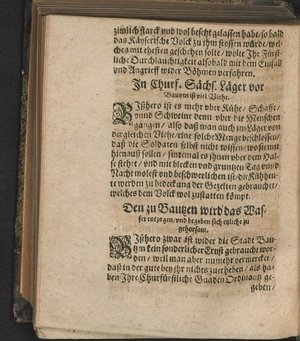 zimlich starck vnd wol besetzt gelassen habe / so bald
das Käyserische Volck zu ihm stossen würde / wel-
ches mit ehesten geschehen solte / wolte Ihr Fürst-
liche Durchläuchtigkeit alsobald mit dem Einfall
vnd Angrieff wider Böhmen verfahren.
In Churf. Sächs. Läger vor
Bautzen ist viel Viehe.
BIßhero ist es mehr vber Kühe / Schaffe /
vnnd Schweine denn vber die Menschen
gangen / also daß man auch im Läger von
dergleichen Viehe eine solche Menge beschlossen /
daß die Soldaten selbst nicht wissen / wo sie mit
hienauß sollen / sintemal es ihnen vber dem Hal-
se stehet / vnd mit blecken vnd gruntzen Tag vnnd
Nacht molest vnd beschwerlichen ist / die Kühheu-
te werden zu bedeckung der Gezelten gebrauchet /
welches dem Volck wol zustatten kömpt.
Den zu Bautzen wird das Was-
ser entzogen / vnd begeben sich etzliche zu
gehorsam.
BIßhero zwar ist wider die Stadt Bau-
tzen kein sonderlicher Ernst gebraucht wor-
den / weil man aber nunmehr vermercket /
daß in der güte bey ihr nichts zuerheben / als ha-
ben Ihre Churfürstliche Gnaden Ordinantz ge-
geben /